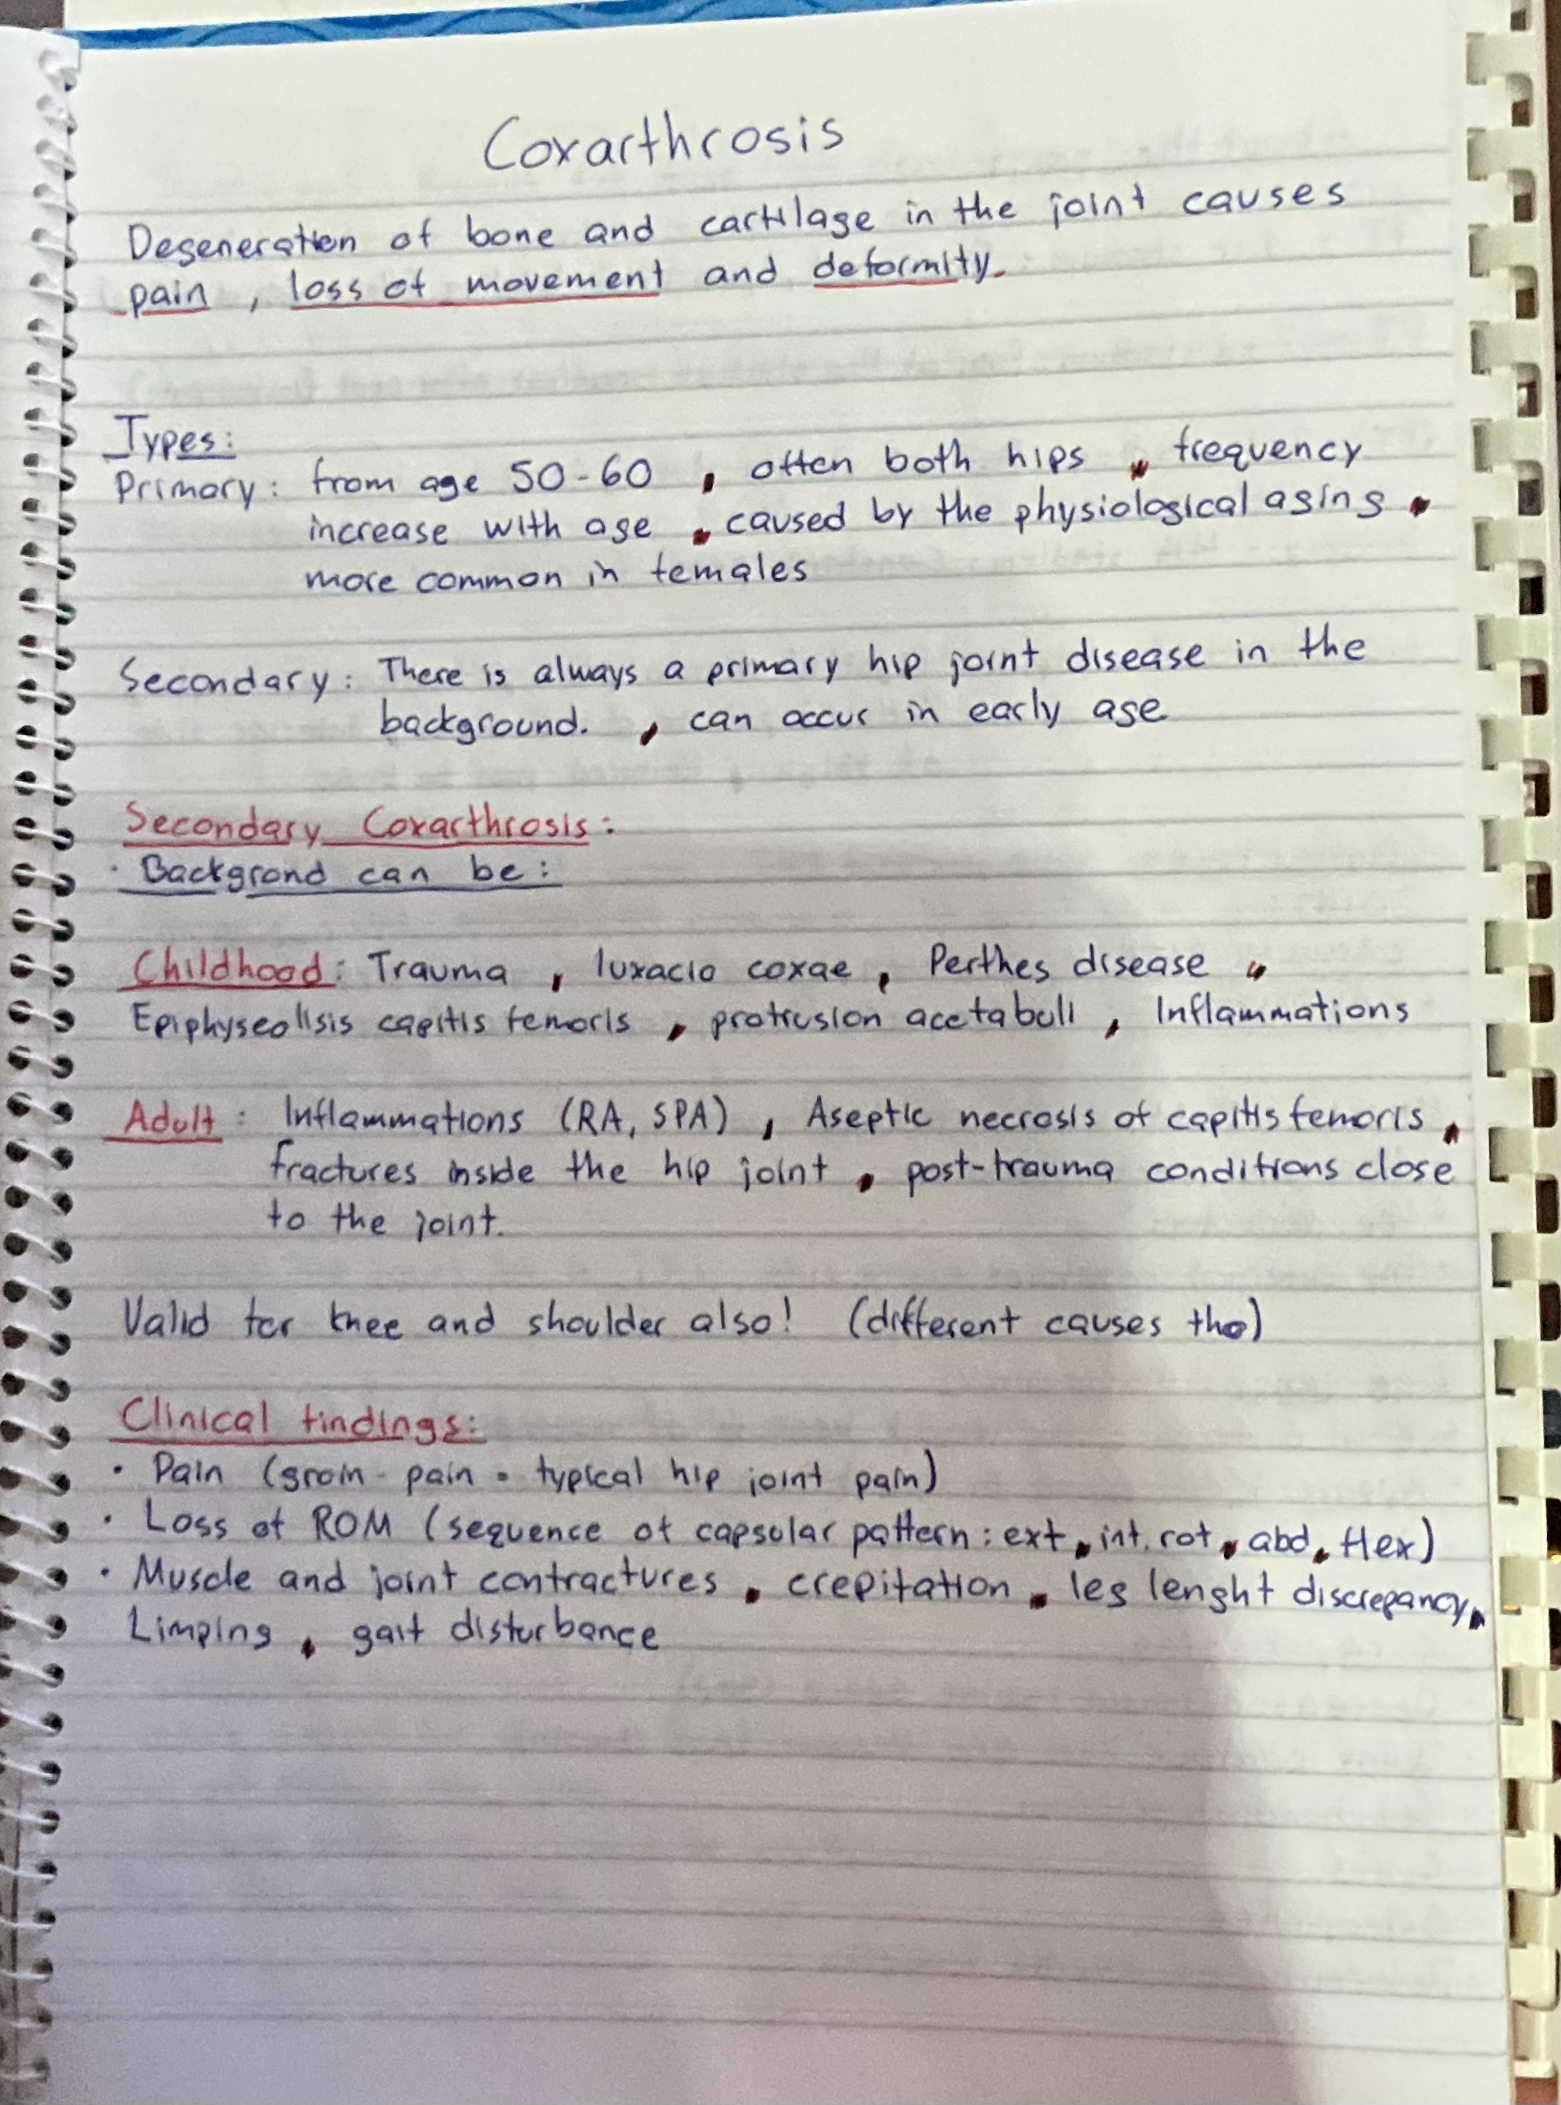 Coxarthrosis
Degeneration of bone and cartilage in the joint causes
pain , loss of movement and deformity.
Types:
Primary: from age 50-60 , often both hips , frequency
increase with age , caused by the physiological aging ,
more common in females
Secondary: There is always a primary hip joint disease in the
background. , can occur in early age
Secondary Coxarthrosis:
· Backgrond can be:
Childhood: Trauma , luxacio coxae , Perthes disease ,
Epiphyseolisis capitis femoris , protrusion acetabuli , Inflammations
Adult: Inflammations (RA, SPA) , Aseptic necrosis of capitis femoris ,
fractures inside the hip joint , post-trauma conditions close
to the joint.
Valid for knee and shoulder also! (different causes tho)
Clinical findings:
· Pain (groin pain = typical hip joint pain)
· Loss of ROM (sequence of capsular pattern: ext , int. rot , abd , flex)
· Muscle and joint contractures , crepitation , leg lenght discrepancy ,
Limping , gait disturbance